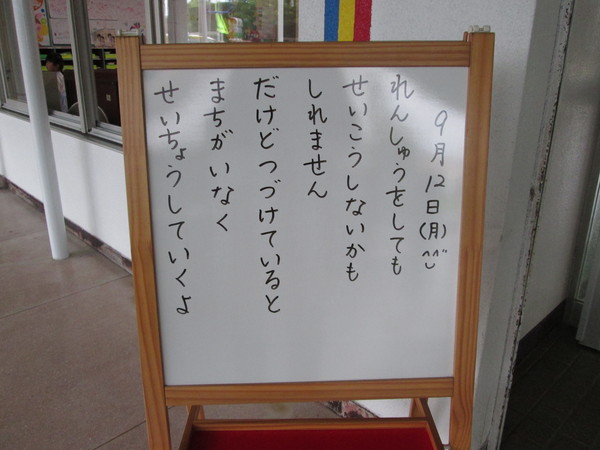 9月12日(月)^^
れんしゅうをしても
せいこうしないかも
しれません
だけどつづけていると
まちがいなく
せいちょうしていくよ